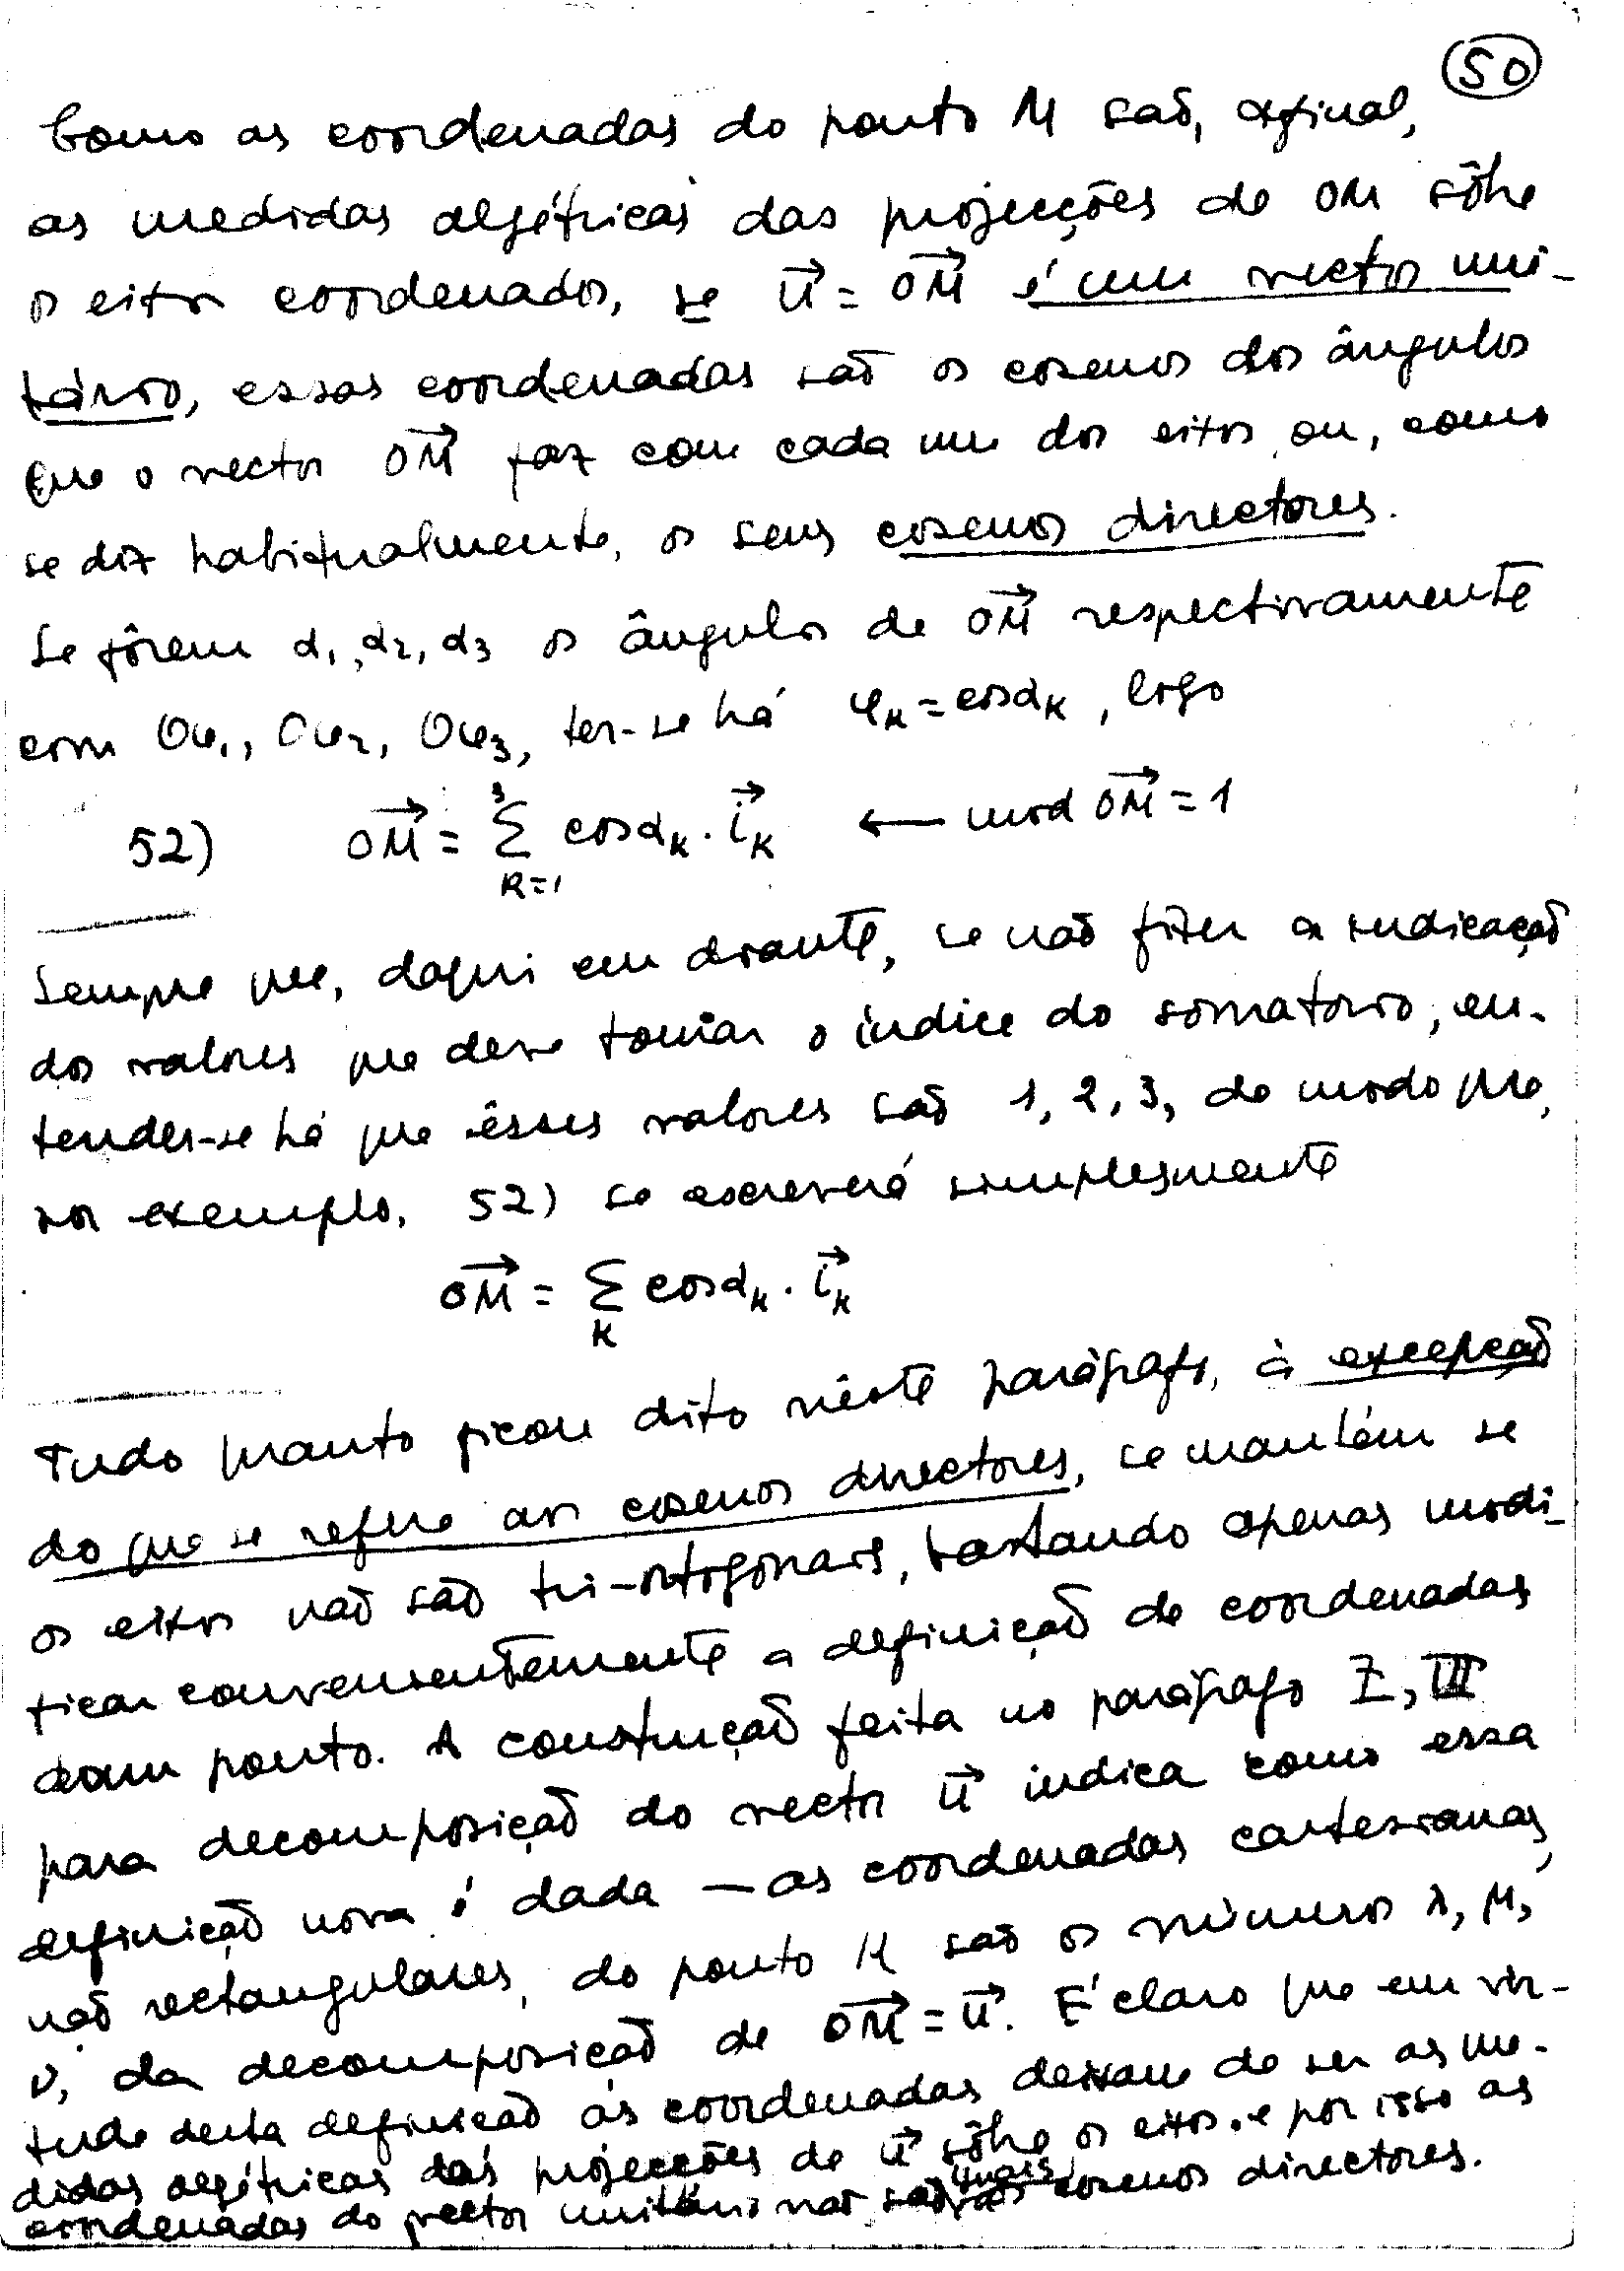 50
Como as coordenadas do ponto M são, afinal,
as medidas algébricas das projecções de OM sôbre
os eixos coordenados, se \vec{u} = \vec{OM} é um vector uni-
tário, essas coordenadas são os cosenos dos ângulos
que o vector \vec{OM} faz com cada um dos eixos ou, como
se diz habitualmente, os seus cosenos directores.
Se fôrem α₁, α₂, α₃ os ângulos de \vec{OM} respectivamente
com Oφ₁, Oφ₂, Oφ₃, ter-se há φ_k = cos α_k, logo
52) \vec{OM} = \sum_{k=1}^{3} cos α_k . \vec{i}_k ← mod \vec{OM} = 1
Sempre que, daqui em diante, se não fizer a indicação
dos valores que deve tomar o índice do somatório, en-
tender-se há que êsses valores são 1, 2, 3, de modo que,
por exemplo, 52) se escreverá simplesmente
\vec{OM} = \sum_{k} cos α_k . \vec{i}_k
Tudo quanto ficou dito nêste parágrafo, à excepção
do que se refere aos cosenos directores, se mantém se
os eixos não são tri-ortogonais, bastando apenas modi-
ficar convenientemente a definição de coordenadas
dum ponto. A construção feita no parágrafo I, III
para decomposição do vector \vec{u} indica como essa
definição nova é dada — as coordenadas cartesianas,
não rectangulares, do ponto M são os números λ, μ,
ν, da decomposição de \vec{OM} = \vec{u}. É claro que em vir-
tude desta definição as coordenadas deixam de ser as me-
didas algébricas das projecções de \vec{u} sôbre os eixos, e por isso as
coordenadas do vector unitário não são mais os cosenos directores.